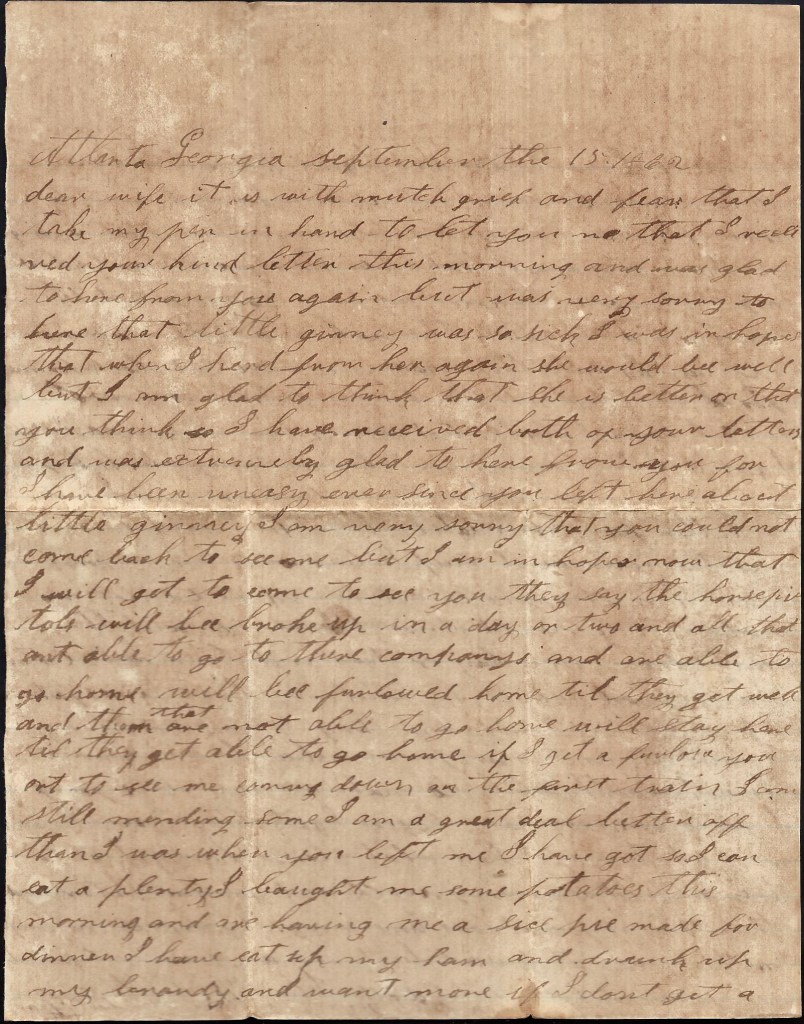 Atlanta Georgia september the 15 1862
dear wife it is with mutch grief and fear that I
take my pen in hand to let you no that I recei
ved your kind letter this morning and was glad
to here from you again but was very sorry to
here that little ginney was so sick I was in hopes
that when I herd from her again she would bee well
but I am glad to think that she is better or that
you think so I have received both of your letters
and was extremely glad to here from you for
I have been uneasy ever since you left here about
little ginney I am very sorry that you could not
come back to see me but I am in hopes now that
I will get to come to see you they say the horsepi
tols will bee broke up in a day or two and all that
ant able to go to there companys and are able to
go home will bee furlowed home til they get well
and them that are not able to go home will stay here
til they get able to go home if I get a furlow you
ort to see me coming down on the first train I am
still mending some I am a great deal better off
than I was when you left me I have got so I can
eat a plenty I baught me some potatoes this
morning and are having me a pie made for
dinner I have eat up my ham and drunk up
my brandy and want more if I dont get a